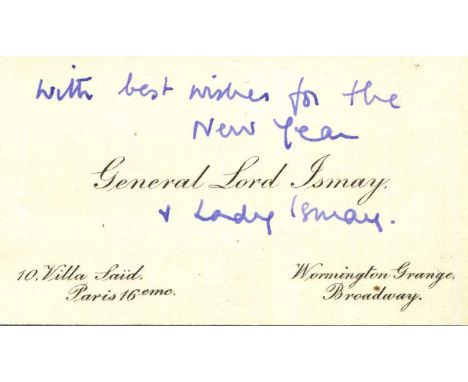 With best wishes for the
New Year
General Lord Ismay.
& Lady Ismay.
10. Villa Saïd.
Paris 16eme.
Wormington Grange,
Broadway.